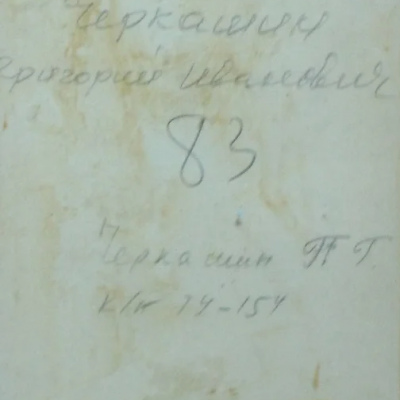 Черкашин
Григорий Иванович
83
Черкашин П Г.
к/н 74-154